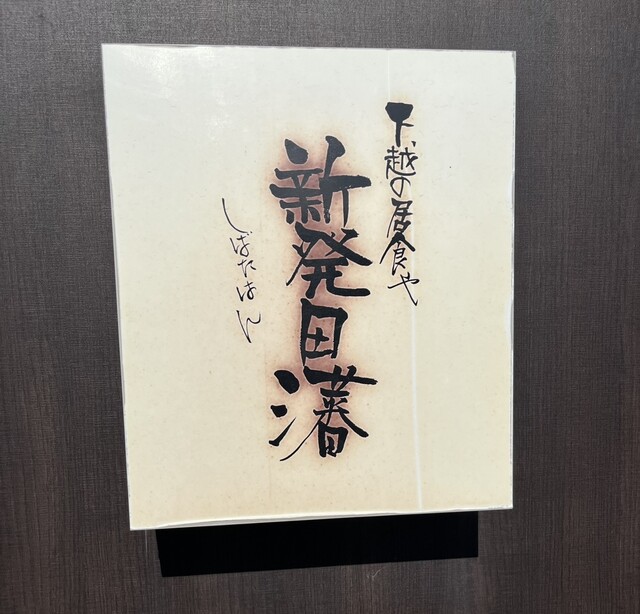 下越の居食や
新発田藩
しばたはん